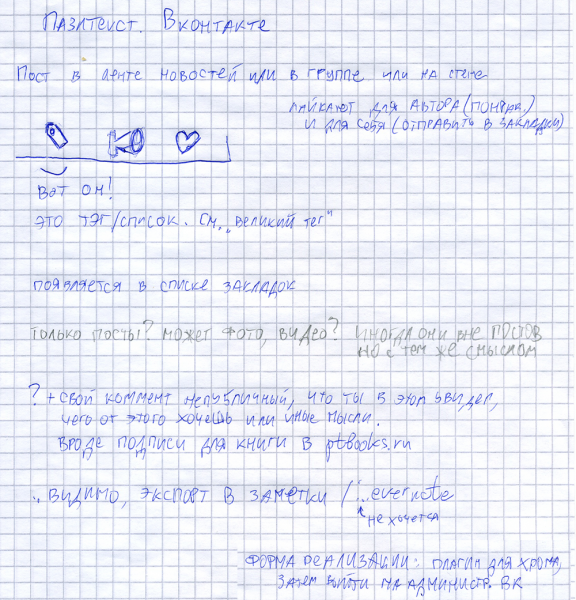 Пазлтекст. Вконтакте
Пост в ленте новостей или в группе или на стене
лайкают для автора (понрав.)
и для себя (отправить в закладки)
Вот он!
это тэг/список. см. „великий тег"
появляется в списке закладок
только посты? может фото, видео? иногда они вне постов
но с тем же смыслом
? + свой коммент непубличный, что ты в этом увидел,
чего от этого хочешь или иные мысли.
вроде подписи для книги в ptbooks.ru
.. видимо, экспорт в заметки / ... evernote
не хочется
форма реализации: плагин для хрома,
затем выйти на администр. ВК